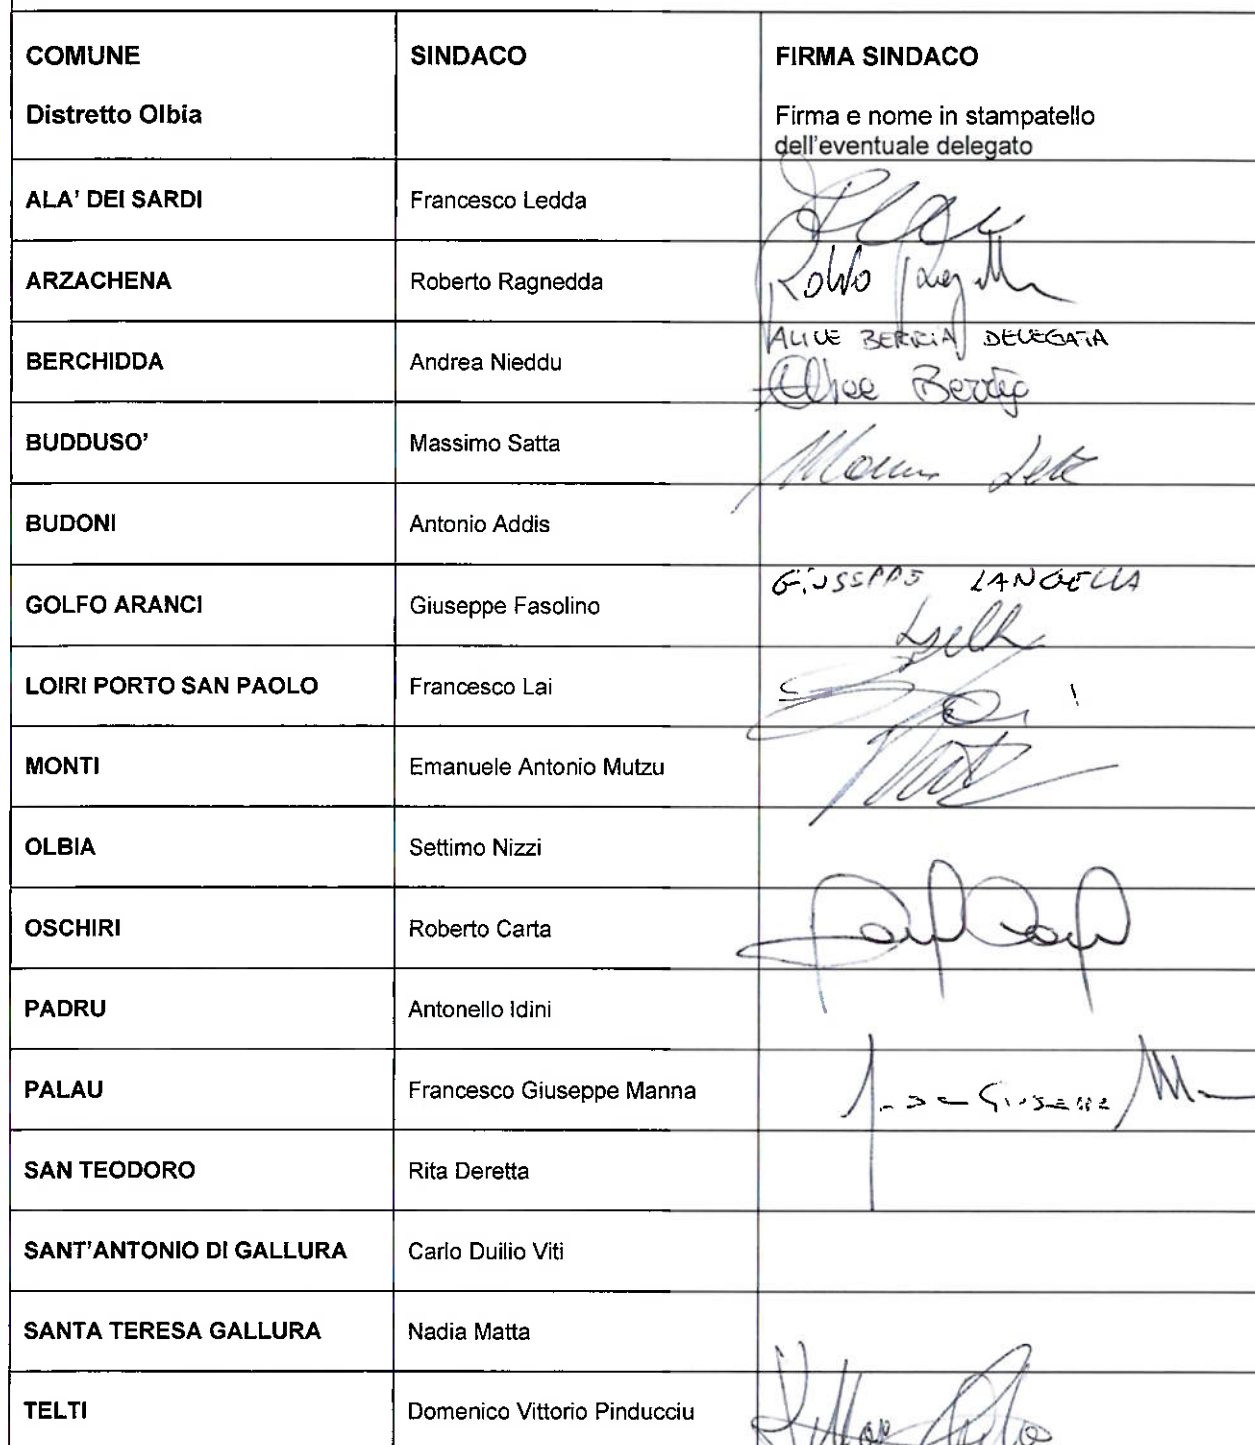 COMUNE
Distretto Olbia
SINDACO
FIRMA SINDACO
Firma e nome in stampatello
dell'eventuale delegato
ALA' DEI SARDI Francesco Ledda
ARZACHENA Roberto Ragnedda
BERCHIDDA Andrea Nieddu ALICE BERRIA DELEGATA
Alice Berria
BUDDUSO' Massimo Satta
BUDONI Antonio Addis
GOLFO ARANCI Giuseppe Fasolino GIUSEPPE LANGELLA
LOIRI PORTO SAN PAOLO Francesco Lai
MONTI Emanuele Antonio Mutzu
OLBIA Settimo Nizzi
OSCHIRI Roberto Carta
PADRU Antonello Idini
PALAU Francesco Giuseppe Manna
SAN TEODORO Rita Deretta
SANT'ANTONIO DI GALLURA Carlo Duilio Viti
SANTA TERESA GALLURA Nadia Matta
TELTI Domenico Vittorio Pinducciu